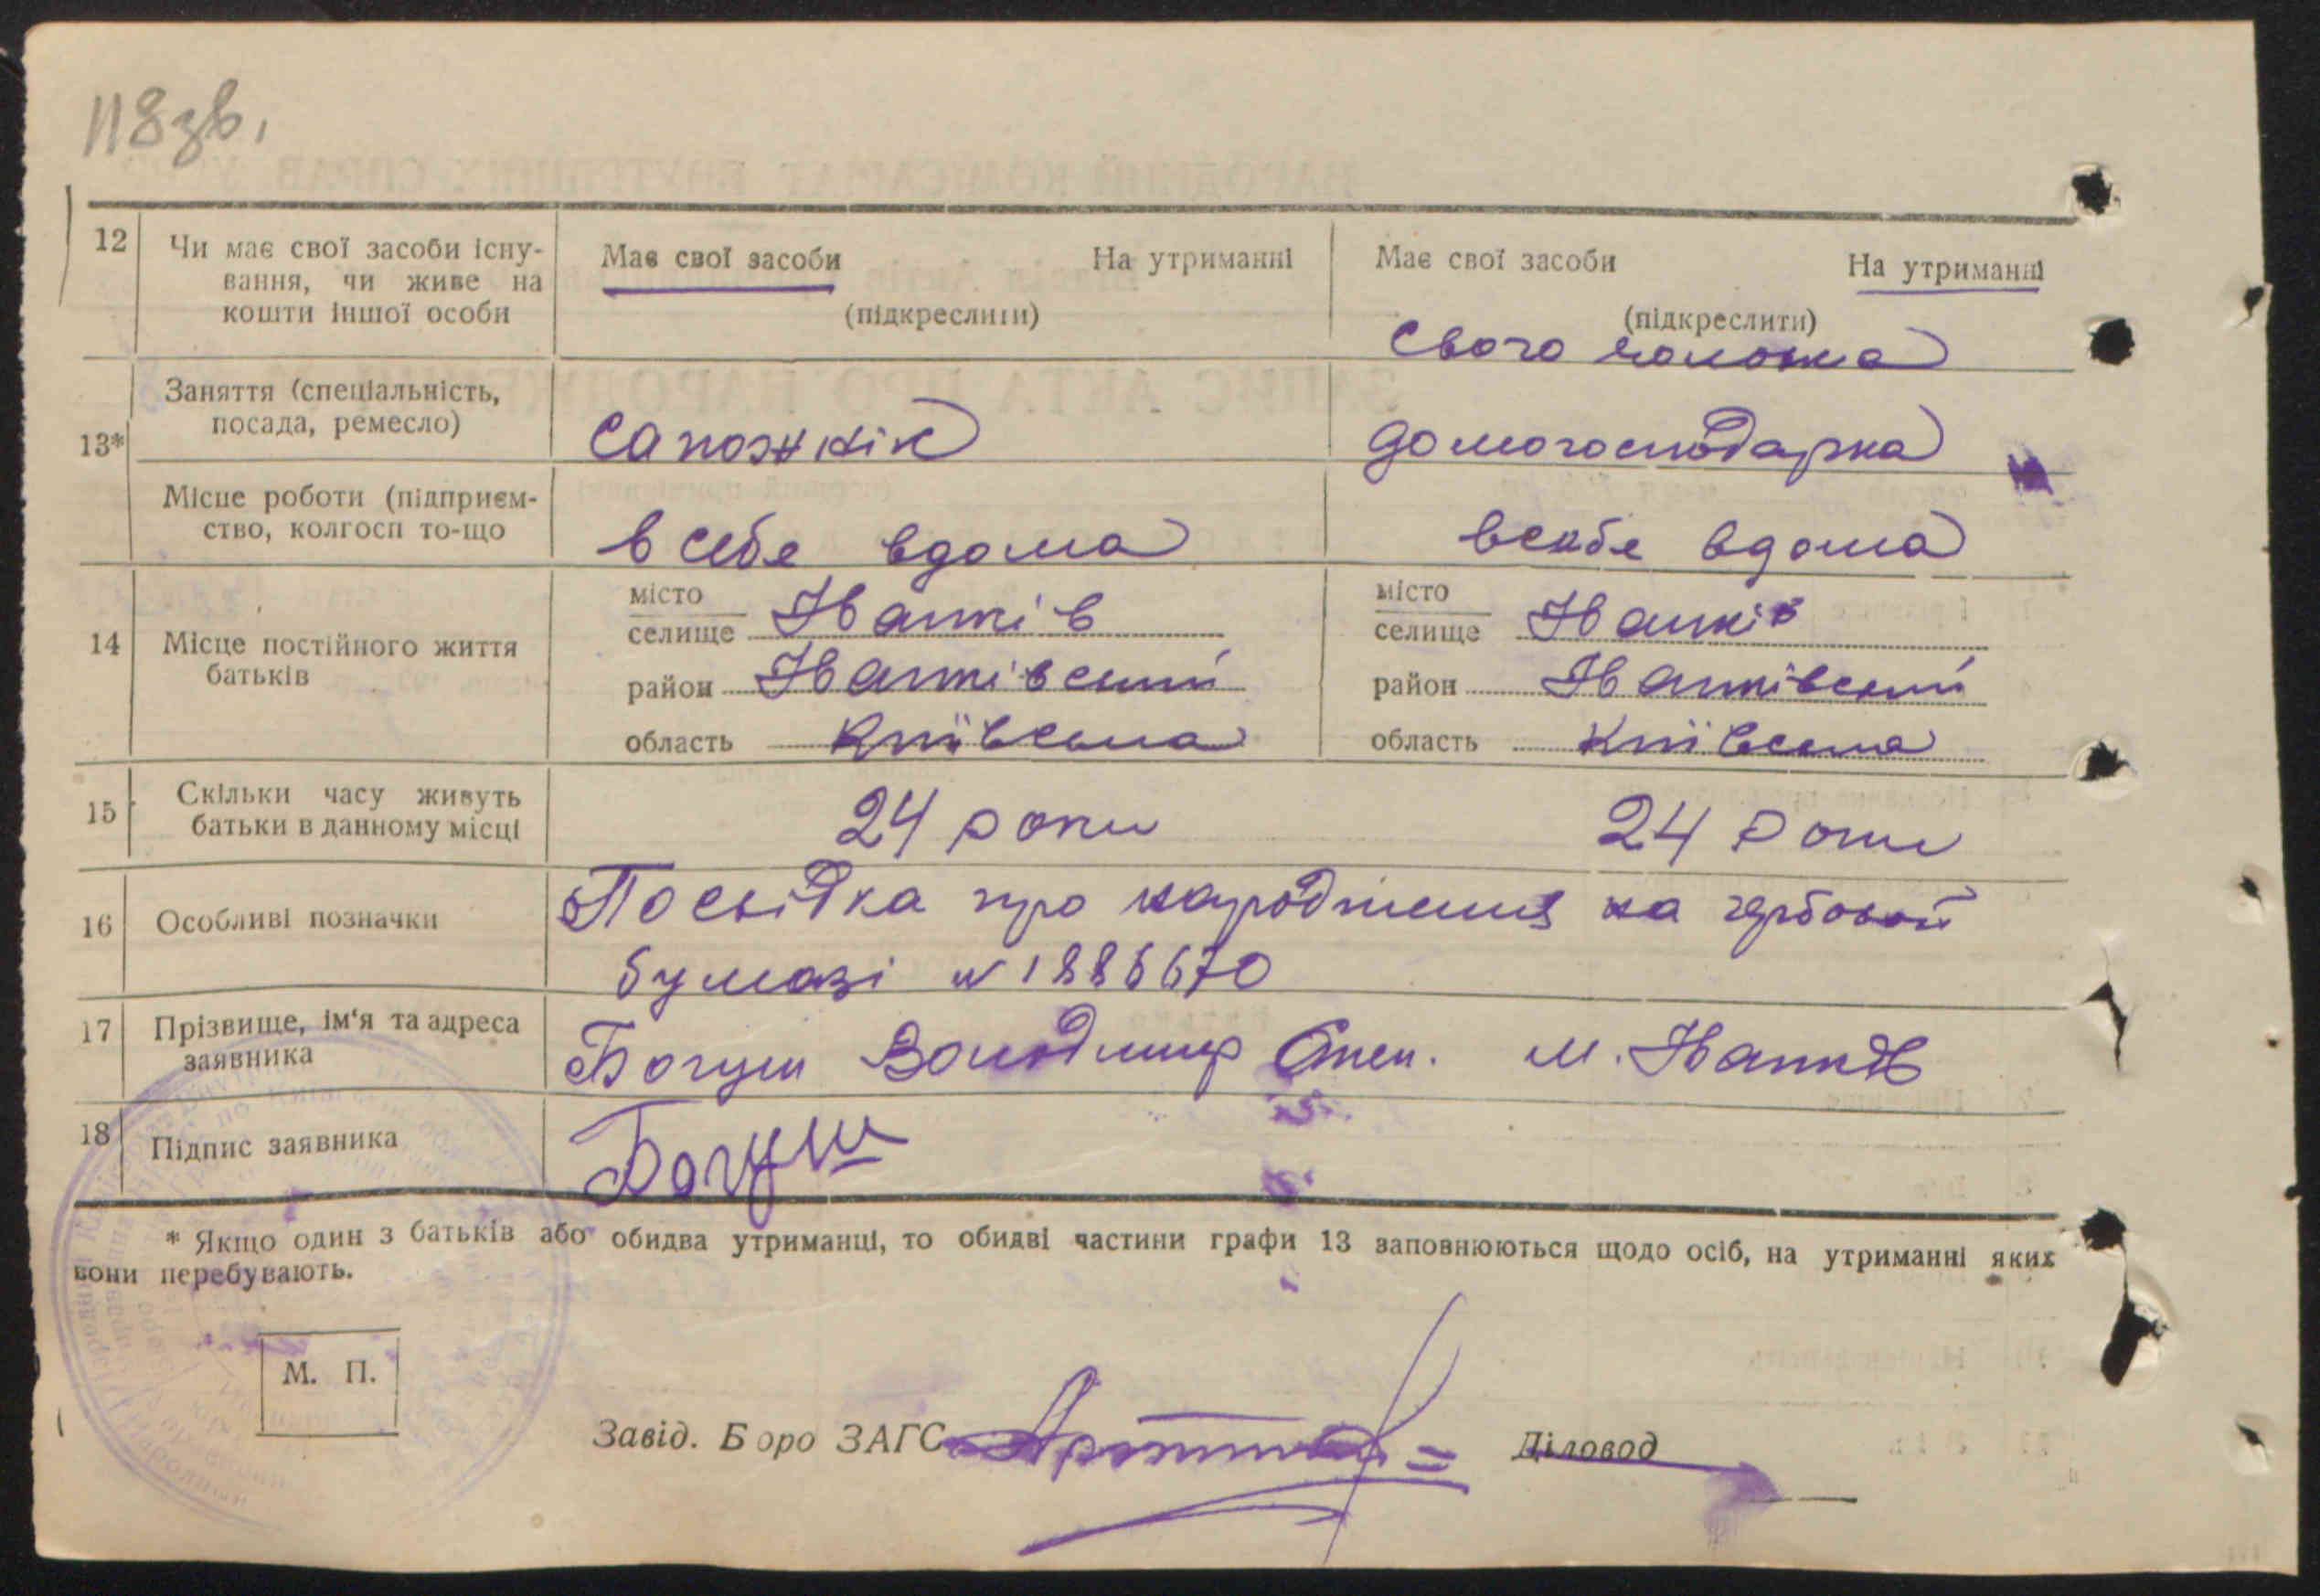 118 зв.
12 Чи має свої засоби існу-
вання, чи живе на
кошти іншої особи
Має свої засоби На утриманні
(підкреслити)
Має свої засоби На утриманні
(підкреслити)
свого чоловіка
13*
Заняття (спеціальність,
посада, ремесло)
сапожнік
домогосподарка
Місце роботи (підприєм-
ство, колгосп то-що
в себе вдома
в себе вдома
14 Місце постійного життя
батьків
місто
селище Іванків
район Іванківский
область Київська
місто
селище Іванків
район Іванківский
область Київська
15 Скільки часу живуть
батьки в данному місці
24 роки
24 роки
16 Особливі позначки
Посвідка про народження на гербовой
бумазі № 1886670
17 Прізвище, ім'я та адреса
заявника
Богуш Володимир м. Іванків
18 Підпис заявника
Богуш
* Якщо один з батьків або обидва утриманці, то обидві частини графи 13 заповнюються щодо осіб, на утриманні яких
вони перебувають.
М. П.
Завід. Бюро ЗАГС
Діловод